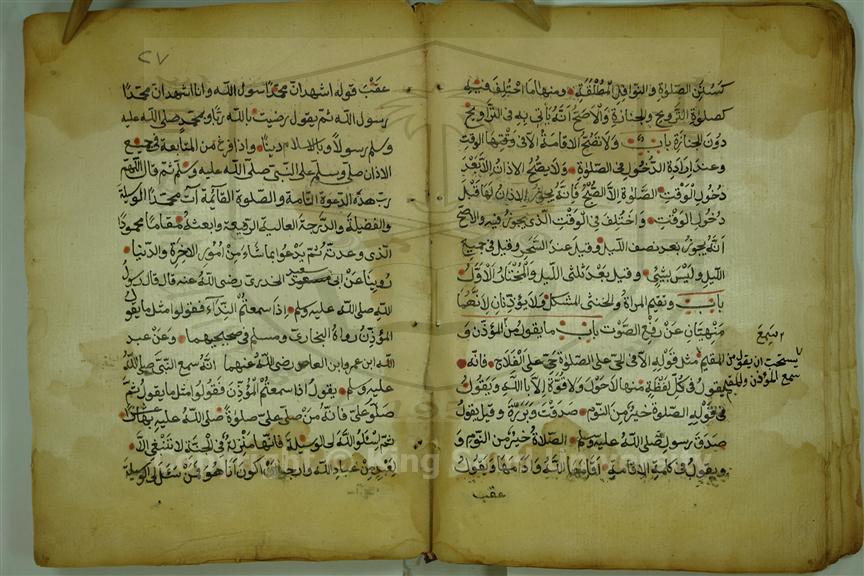 كسنن الصلوة والنوافل المطلقة ومنها ما اختلف فيه
كصلوة التراويح والجنازة والاصح انه يأتي به في التراويح
دون الجنازة باب ولا تصح الاقامة الا في وقتها الوقت
وعند ارادة الدخول في الصلوة ولا يصح الاذان الا بعد
دخول الوقت الصلوة الا الصبح فانه يجوز الاذان لها قبل
دخول الوقت واختلف في الوقت الذي يجوز فيه والاصح
انه يجوز بعد نصف الليل وقيل عند السحر وقيل في جميع
الليل وليس بشئ وقيل بعد ثلثي الليل والمختار الاول
باب وتقيم المراة والخنثى المشكل ولا يؤذنان لانهما
منهيان عن رفع الصوت باب ما يقول من المؤذن و
المقيم مثل قوله الا في الحي على الصلوة حي على الفلاح فانه
يقول في كل لفظة منها لا حول ولا قوة الا بالله ويقول
في قوله الصلوة خير من النوم صدقت وبررت وقيل يقول
صدق رسول الله صلى الله عليه وسلم الصلاة خير من النوم و
ويقول في كلمة الاقامة اقامها الله وادامها ويقول
عقب
سمع
يستحب ان يقول من
سمع المؤذن والمقيم
٢٧
عقب قوله اشهد ان محمدا رسول الله وانا اشهد ان محمدا
رسول الله ثم يقول رضيت بالله ربا وبمحمد صلى الله عليه
وسلم رسولا وبالاسلام دينا واذا فرغ من المتابعة في جميع
الاذان صلى وسلم على النبي صلى الله عليه وسلم ثم قال اللهم
رب هذه الدعوة التامة والصلوة القائمة آت محمدا الوسيلة
والفضيلة والدرجة العالية الرفيعة وابعثه مقاما محمودا
الذي وعدته ثم يدعوا بما شاء من امور الاخرة والدنيا
روينا عن ابي سعيد الخدري رضي الله عنه قال قال رسول
الله صلى الله عليه وسلم اذا سمعتم النداء فقولوا مثل ما يقول
المؤذن رواه البخاري ومسلم في صحيحيهما وعن عبد
الله ابن عمرو ابن العاص رضي الله عنهما انه سمع النبي صلى الله
عليه وسلم يقول اذا سمعتم المؤذن فقولوا مثل ما يقول ثم
صلوا علي فانه من صلى علي صلوة صلى الله عليه بها عشرا
ثم اسئلوا الله لي الوسيلة فانها منزلة في الجنة لا تنبغي الا
لعبد من عباد الله وارجوا ان اكون انا هو فمن سئل لي الوسيلة